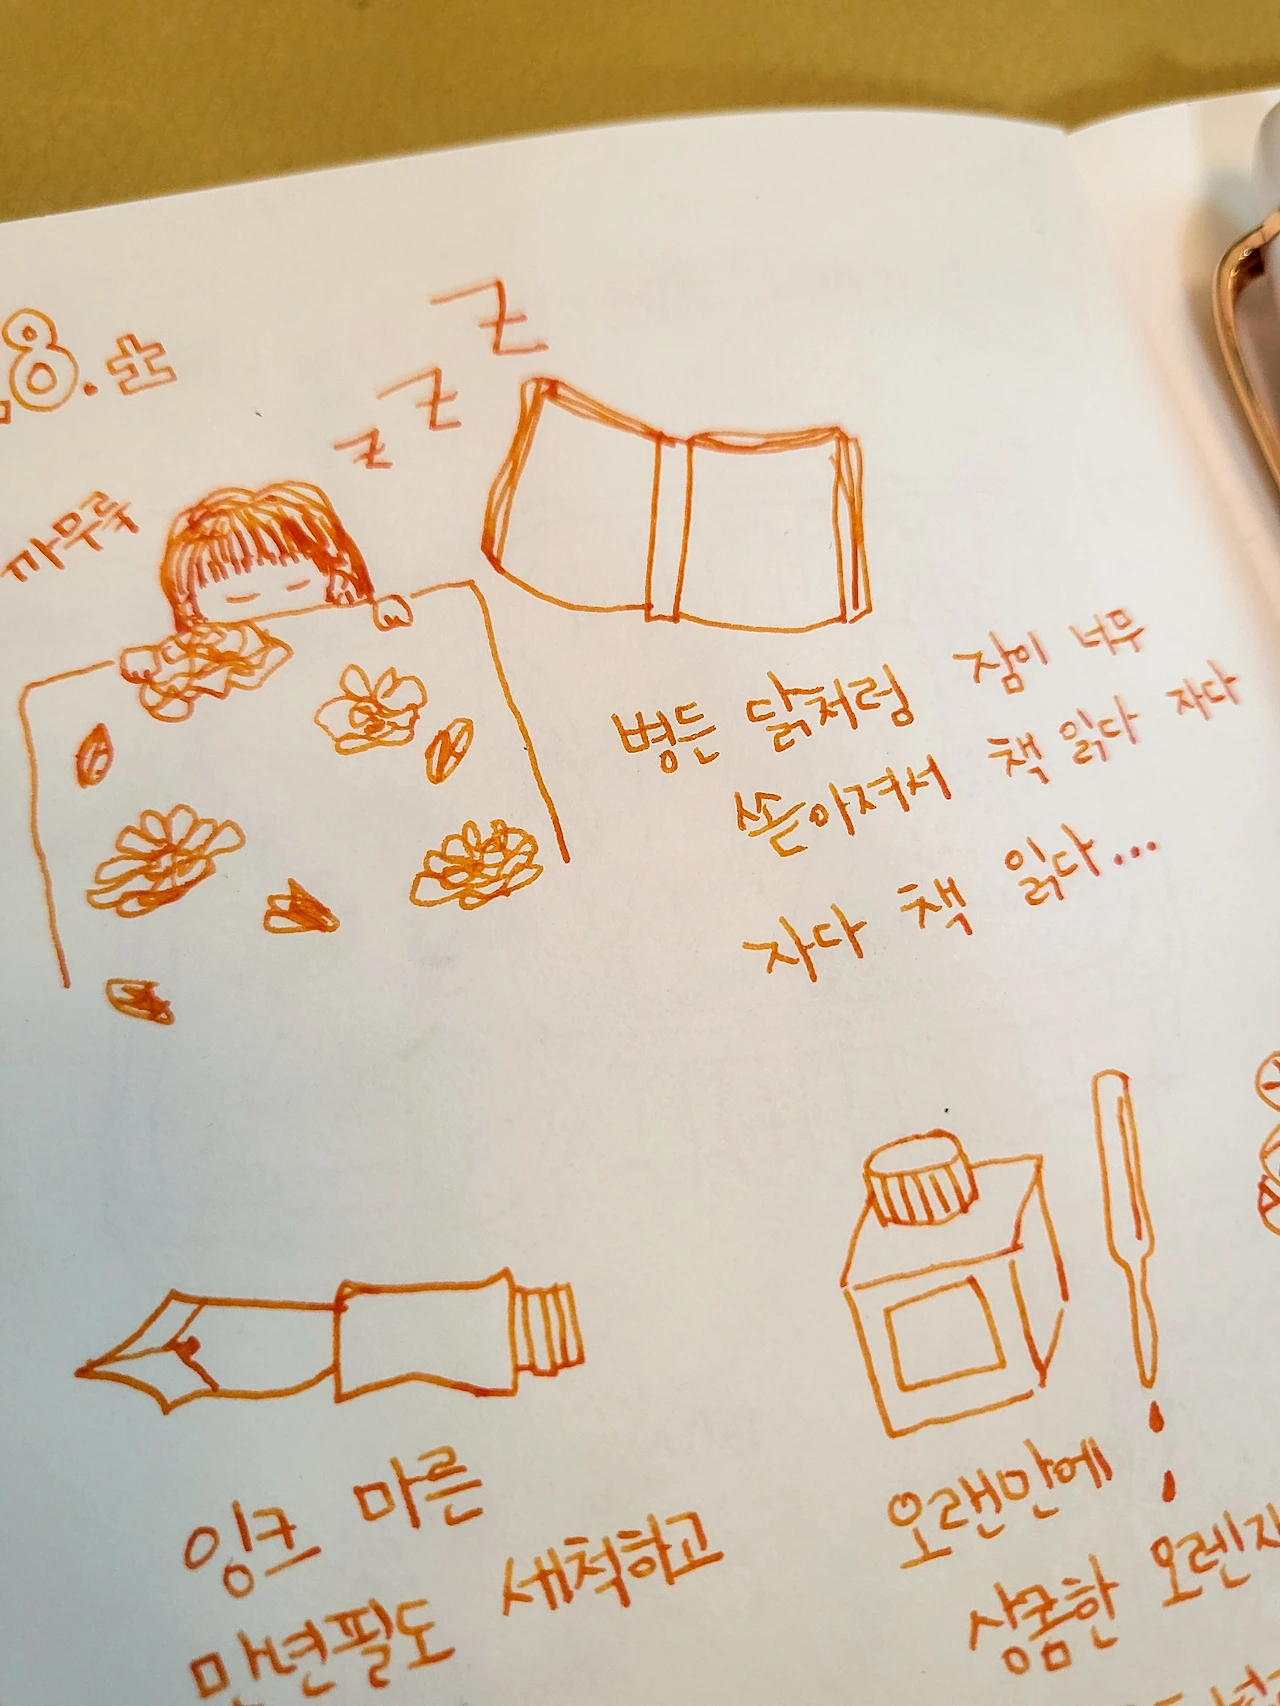 8.土
zzZ
까무룩
병든 닭처럼 잠이 너무
쏟아져서 책 읽다 자다
자다 책 읽다...
잉크 마른
만년필도 세척하고
오랜만에
상큼한 오렌지